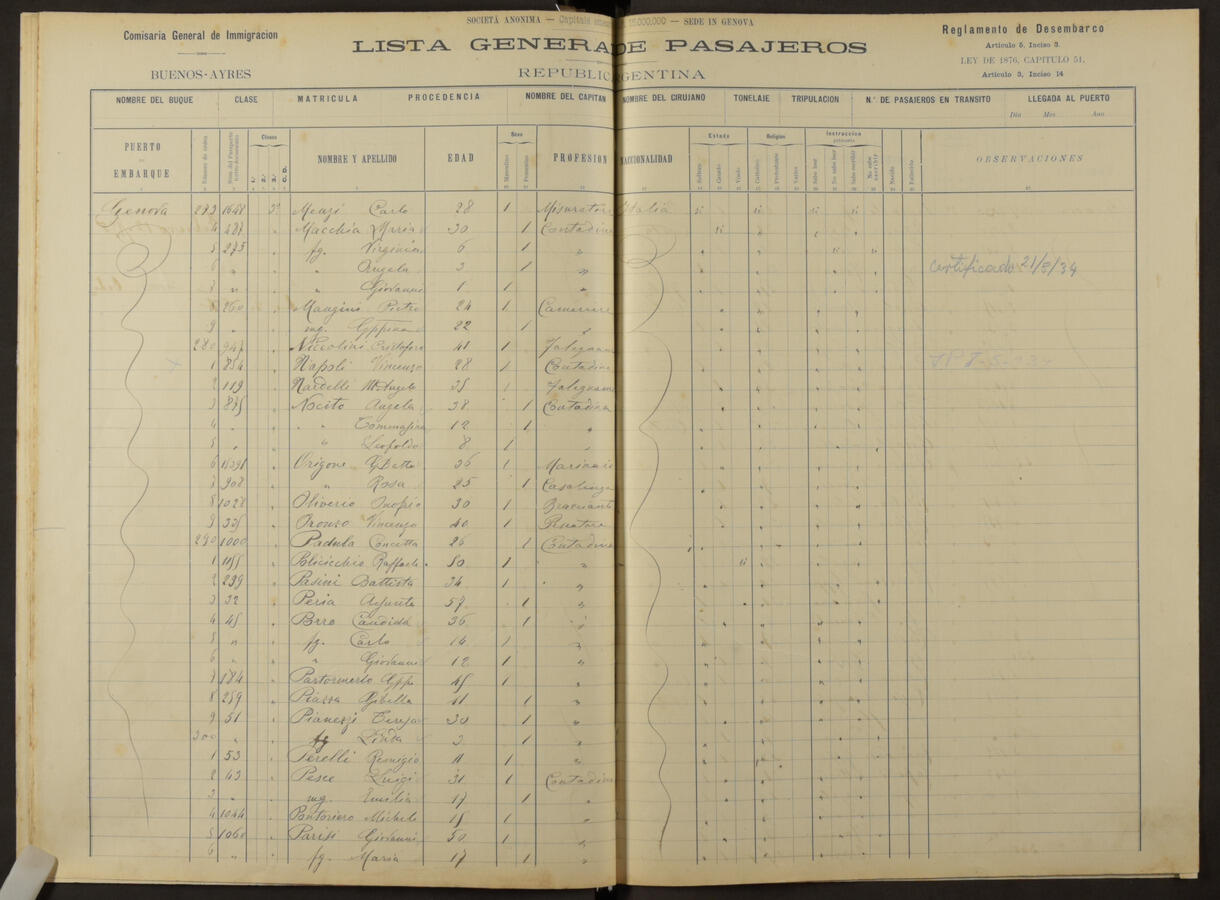 SOCIETÀ ANONIMA — Capitale .000.000 — SEDE IN GENOVA
Comisaria General de Immigracion
LISTA GENERA DE PASAJEROS
Reglamento de Desembarco
Articulo 5, Inciso 3.
LEY DE 1876, CAPITULO 51,
Articulo 3, Inciso 14
BUENOS-AYRES
REPUBLIC GENTINA
NOMBRE DEL BUQUE CLASE MATRICULA PROCEDENCIA NOMBRE DEL CAPITAN NOMBRE DEL CIRUJANO TONELAJE TRIPULACION N.º DE PASAJEROS EN TRANSITO LLEGADA AL PUERTO
Dia Mes Ano
PUERTO DE EMBARQUE Clases 1.ª 2.ª 3.ª C.D. NOMBRE Y APELLIDO EDAD Sexo Masculino Femenino PROFESION NACCIONALIDAD Estado Soltero Casado Viudo Religion Catolico Protestante Instruccion Sabe leer No sabe leer Sabe escribir No sabe escribir OBSERVACIONES
Genova 273 1648 3ª Meazi Carlo 28 1 Misuratore Italia
4 487 Macchia Maria 30 1 Contadina
5 275 fg. Virginia 6 1 "
6 " " Angela 3 1 " certificado 21/8/34
7 " " Giovanni 1 1 "
8 260 Mangini Pietro 24 1 Cameriere
9 " mg. Gppina 22 1 "
280 947 Niccolini Cristoforo 41 1 Falegname
1 854 Napoli Vincenzo 28 1 Contadino
2 119 Nardelli M. Angelo 35 1 Falegname
3 875 Nocito Angela 38 1 Contadina
4 " " Tommasina 12 1 "
5 " " Leopoldo 8 1 "
6 Origone GBatta 36 1 Marinaio
7 908 " Rosa 25 1 Casalinga
8 1028 Oliverio Onofrio 30 1 Bracciante
9 335 Oronzo Vincenzo 40 1
290 1000 Padula Concetta 26 1 Contadina
1 1155 Policicchio Raffaele 50 1 "
2 299 Pasini Battista 34 1 "
3 32 Peria Assunta 57 1 "
4 45 Porro Candida 36 1 "
5 " fg. Carlo 14 1 "
6 " " Giovanni 12 1 "
7 184 Pastormerlo Gppe 45 1 "
8 259 Piazza Sibella 41 1 "
9 51 Pianezzi Teresa 30 1 "
300 fg Linda 3 1 "
1 53 Perelli Remigio 11 1 "
2 43 Pesce Luigi 31 1 Contadino
3 " mg. Emilia 17 1 "
4 1044 Pontoriero Michele 15 1 "
5 1060 Parisi Giovanni 50 1 "
6 " fg. Maria 17 1 "